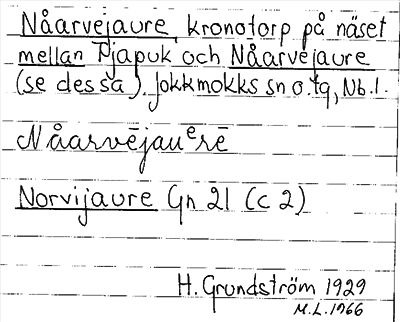 Nåarvejaure, kronotorp på näset
mellan Pjapuk och Nåarvejaure
(se dessa). Jokkmokks sn o. tg, Nb. l.
Nåarvējauᵉrē
Norvijaure Gn 21 (c 2)
H. Grundström 1929
M.L. 1966